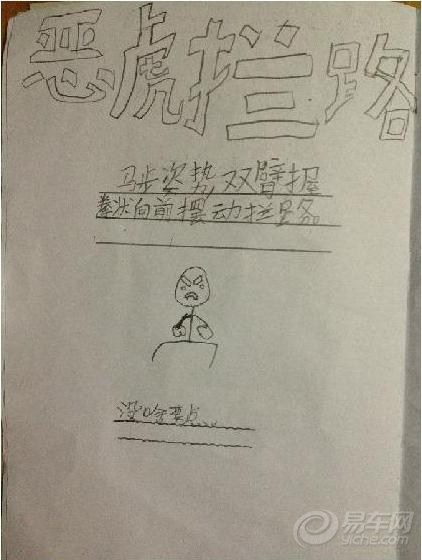 恶虎拦路
马步姿势双臂握
拳状向前摆动拦路
没啥要点
易车网
yiche2.com